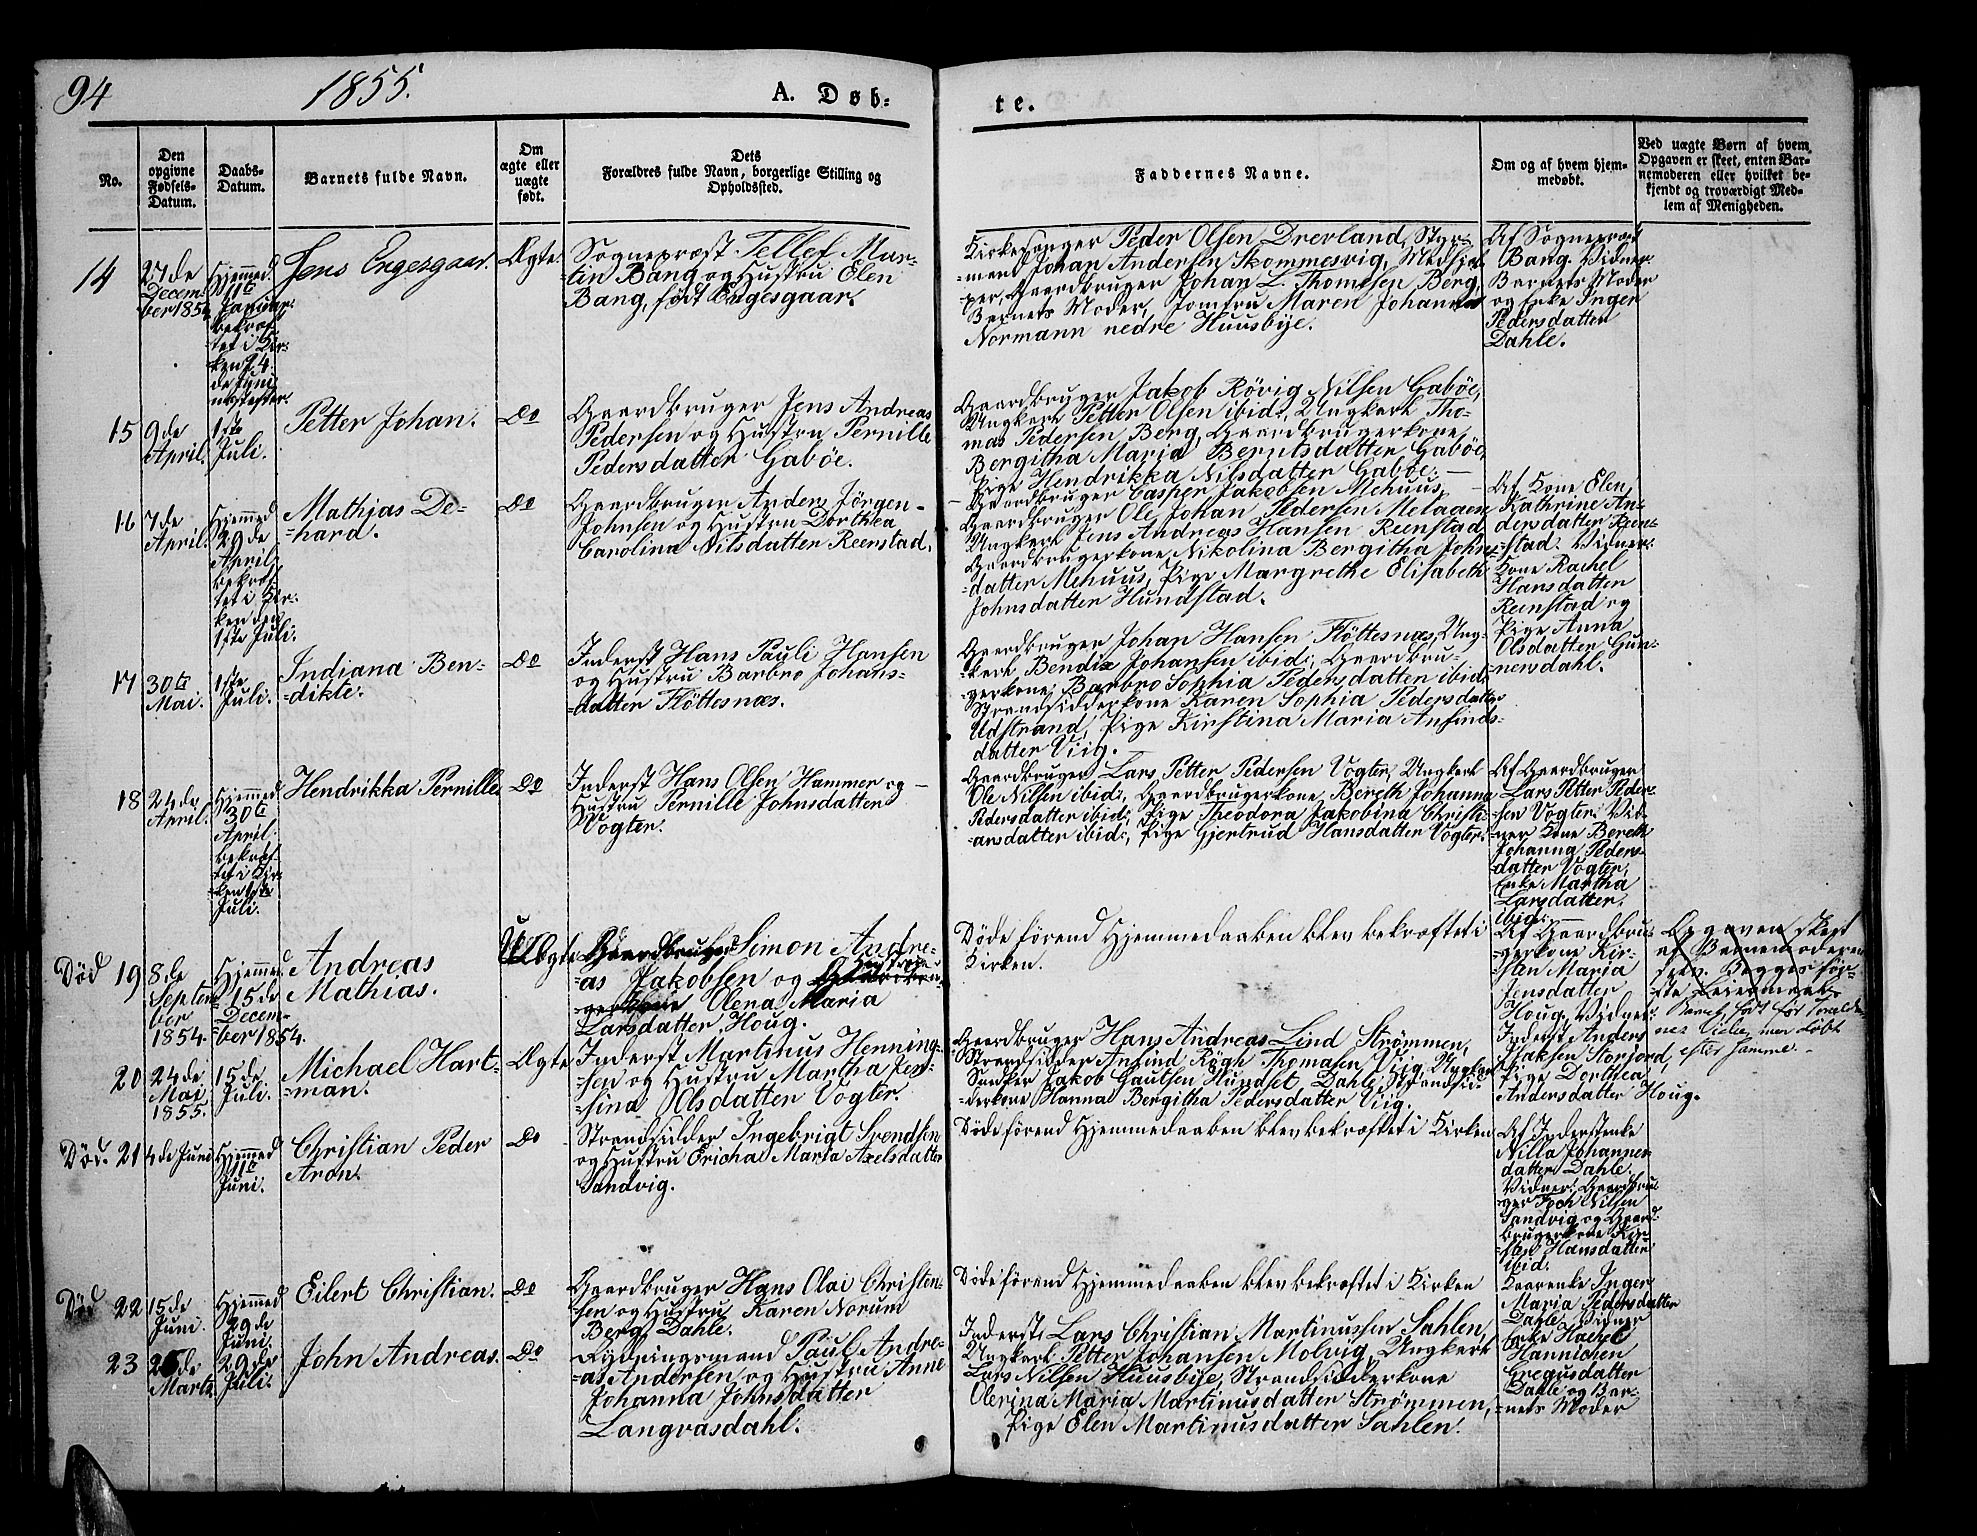 94
1855.
A. Døb-
te.
No.
Den opgivne Fødsels-Datum.
Daabs-Datum.
Barnets fulde Navn.
Om ægte eller uægte født.
Dets Forældres fulde Navn, borgerlige Stilling og Opholdssted.
Faddernes Navne.
Om og af hvem hjem-medøbt.
Ved uægte Børn af hvem Opgaven er skeet, enten Bar-nemoderen eller hvilket be-kjendt og troværdigt Med-lem af Menigheden.
14
27de
Decem-
ber 1854
Hjemmed.
11te
Januar
bekræf-
tet i Kir-
ken 24
de Juni
næstefter.
Jens Engesgaar.
Ægte
Sogneprest Tellef Mar-
tin Bang og Hustru Elen
Bang, født Engesgaar.
Kirkesanger Peder Olsen Drevland, Styr-
mand Johan Andersen Skommesvig, Medhjel-
per, Gaardbruger Johan L. Thomesen Berg,
Barnets Moder, Jomfru Maren Johanna
Normann nedre Huusbye.
Af Sogneprest
Bang. Vidner
Barnets Moder
og Enke Inger
Pedersdatter
Dahle.
15
9de
April.
1ste
Juli.
Petter Johan.
Do
Gaardbruger Jens Andreas
Pedersen og Hustru Pernille
Pedersdatter Gabøe.
Gaardbruger Jakob Rövig Nilsen Gabøe,
Ungkarl Petter Olsen ibid:, Ungkarl Tho-
mas Pedersen Berg, Gaardbrugerkone
Bergitha Maria Berntsdatter Gabøe,
Pige Hendrikka Nilsdatter Gabøe.
16
7de
April.
Hjemmed
29de
April
bekræf-
tet i Kir-
ken den
1ste Juli.
Mathias De-
-hard.
Do
Gaardbruger Anders Jörgen
Johnsen og Hustru Dorthea
Carolina Nilsdatter Reenstad.
Gaardbruger Casper Jakobsen Mehuus,
Gaardbruger Ole Johan Pedersen Melaaen
Ungkarl Jens Andreas Hansen Reenstad
Gaardbrugerkone Nikolina Bergitha Johns-
-datter Mehuus, Pige Margrethe Elisabeth
Johnsdatter Hundstad.
Af Kone Elen
Kathrine An-
dersdatter Reen-
-stad. Vidner:
Kone Rachel
Hansdatter
Reenstad og
Pige Anna
Olsdatter Gun-
-newsdahl.
17
30te
Mai.
1ste
Juli.
Indiana Ben-
-dikte.
Do
Inderst Hans Pauli Hansen
og Hustru Barbro Johans-
-datter Flöttesnæs.
Gaardbruger Johan Hansen Flöttesnæs, Ung-
-karl Bendix Johansen ibid:, Gaardbru-
-gerkone Barbro Sophia Pedersdatter ibid.
Strandsidderkone Karen Sophia Pedersdatter
Udstrand, Pige Kirstina Maria Ansinds-
datter Viig.
18
24de
April.
Hjemmed
30te
April.
bekræf-
tet i Kir-
-ken 1ste
Juli.
Hendrikka Pernille
Do
Inderst Hans Olsen Hammer og
Hustru Pernille Johnsdatter
Vogter.
Gaardbruger Lars Petter Pedersen Vogter, Ungkarl
Ole Nilsen ibid:, Gaardbrugerkone Bereth Johanna
Pedersdatter ibid:, Pige Theodora Jakobina Christi-
ansdatter ibid:, Pige Gjertrud Hansdatter Vogter.
Af Gaardbruger
Lars Petter Peder-
sen Vogter. Vid-
ner Kone Bereth
Johanna Peders-
datter Vogter,
Enke Martha
Larsdatter,
ibid:
Död
19
8de
Septem-
ber
1854.
Hjemmed
15de
Decem-
-ber 1854.
Andreas
Mathias.
Ægte
Gaardbruger Simon Andre-
as Jakobsen og Hustrue
Olena Maria
Larsdatter Houg.
Døde førend Hjemmedaaben blev bekræftet i
Kirken.
Af Gaardbru-
gerkone Kir-
sten Maria
Jensdatter
Houg, Vidner:
Inderst Anders
Isaksen Storjord,
Pige Dorthea
Andersdatter Houg.
Opgaven skeet
af Barnemoderen
seen. Begges för-
ste Leiermaal.
Barnet födt før Forældre-
nes Vielse, men døbt
efter samme.
20
24de
Mai
1855.
15de
Juli.
Michael Hart-
-man.
Ægte
Inderst Martinus Henning-
-sen og Hustru Martha Jen-
-sina Olsdatter Vogter.
Gaardbruger Hans Andreas Lind Strömmen,
Strandsidder Ansind Rögh Thomasen Viig, Ungkarl
Santer Jakob Gautsen Hundset Dahle, Strandsid-
-derkone Hanna Bergitha Pedersdatter Viig.
Död.
21
4de Juni
Hjemmed
11te
Juni.
Christian Peder
Aron.
Do
Strandsidder Ingebrigt Svendsen
og Hustru Ericha Maria Axelsdatter
Sandvig.
Døde førend Hjemmedaaben blev bekræftet i Kirken
Af Inderstenke
Nilla Johannes
datter Dahle.
Vidner: Gaardbru-
ger Foch Nilsen
Sandvig og Gaard-
brugerkone Kir-
-sten Hansdatter
ibid.
Död
22
15de
Juni.
Hjemmed
29de
Juni.
Eilert Christian.
Do
Gaardbruger Hans Olai Christen-
-sen og Hustru Karen Norum
Berg, Dahle.
Døde førend Hjemmedaaben blev bekræftet i Kirken
Kaarenke Inger
Maria Pedersdatter
Dahle. Vidner
Enke Hachel
Hannichen
Greausdatter
Dahle og Bar-
-nets Moder
23
25de
Marts
29de
Juli.
John Andreas.
Do
Rydningsmand Paul Andre-
-as Andersen og Hustru Anne
Johanna Johnsdatter
Langvasdahl.
Inderst Lars Christian Martinussen Sahlen,
Ungkarl Petter Johansen Molvig, Ungkarl
Lars Nilsen Huusbye, Strandsidderkone
Olerina Maria Martinusdatter Strömmen,
Pige Elen Martinusdatter Sahlen.